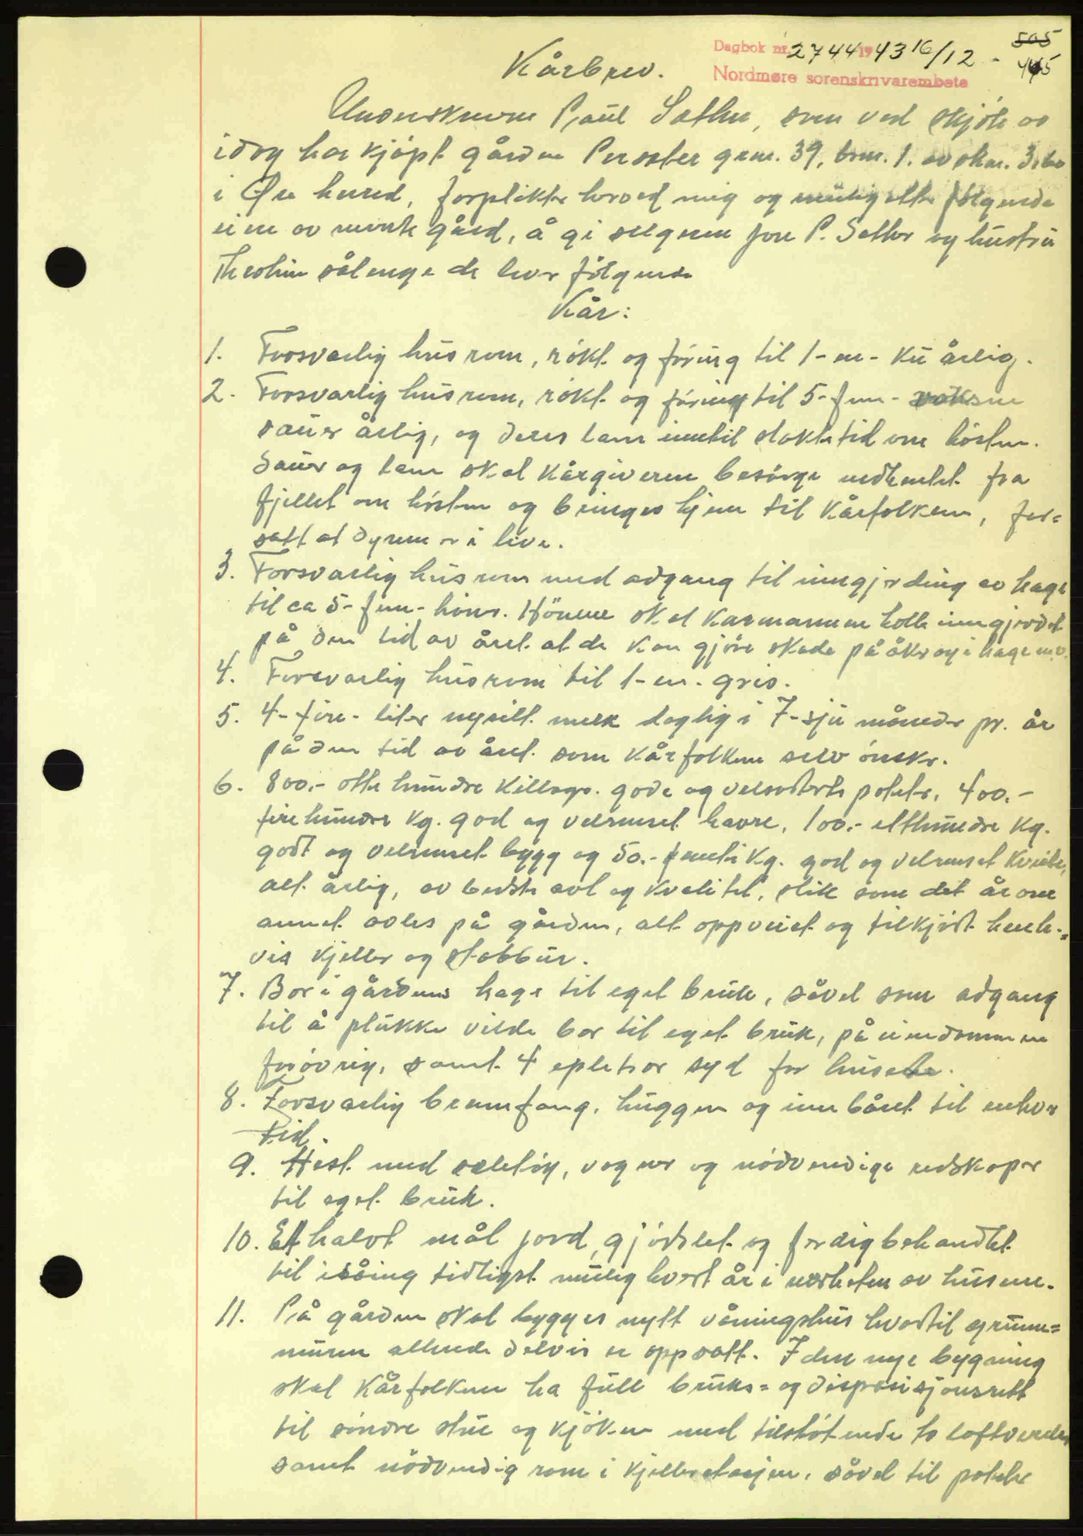 Dagbok nr. 2744 1943 16/12 - 505
Nordmøre sorenskrivarembete 445
Kårbrev.
Underskrevne Paul Sæther, som ved skjøte av
idag har kjøpt gården Perseter grnr. 39, brnr. 1. av skm.
i Øre herred, forplikter herved mig og mulig etterfølgende
eiere av nevnte gård, å gi selgeren Jon P. Sæther og hustru
sålenge de lever følgende
Kår:
1. Forsvarlig husrom, røkt og fóring til 1-en- ku årlig.
2. Forsvarlig husrom, røkt og fóring til 5-fem- voksne
sauer årlig, og deres lam inntil slaktetid om hösten.
Sauer og lam skal kårgiveren besörge nedhentet fra
fjellet om hösten og bringes hjem til Kårfolkene, for=
satt at dyrene er i live.
3. Forsvarlig husrom med adgang til inngjerding av hage
til ca 5-fem- höns. Hönene skal Karmannen holde inngjerdet
på den tid av året at de kan gjöre skade på åker og i hage m.v.
4. Forsvarlig husrom til 1-en- gris.
5. 4-fire- liter nysilt melk daglig i 7-sju måneder pr. år
på den tid av året som kårfolkene selv önsker.
6. 800.- otte hundre kilogr. gode og velsorterte poteter, 400.-
firehundre kg. god og velrenset havre, 100.- etthundre kg.
godt og velrenset bygg og 50.- femti kg. god og velrenset kveite,
alt årlig, av beste avl og kvalitet, slik som det år om
annet avles på gården, alt oppveiet og tilkjört henh.=
vis kjeller og stabbur.
7. Bær i gårdens hage til eget bruk, såvel som adgang
til å plukke vilde bær til eget bruk, på eiendommen
forövrig, samt 4 epletrær syd for husene.
8. Forsvarlig brennfang, huggen og innbåret til enhver
tid.
9. Hest med seletöy, vogner og nödvendige redskaper
til eget bruk.
10. Et halvt mål jord, gjödslet og ferdigbehandlet
til isåing tidligst mulig hvert år i nærheten av husene.
11. På gården skal bygges nytt våningshus hvortil grunn=
muren allerede delvis er oppsatt. I den nye bygning
skal Kårfolkene ha full bruks= og disposisjonsrett
til söndre stue og kjöken med tilstötende to loftværelser
samt nödvendig rom i kjelleretasjen, såvel til poteter